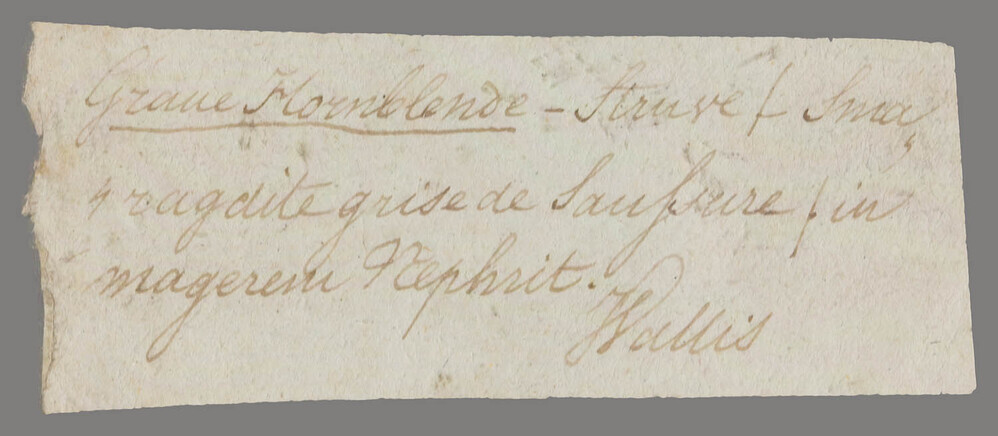 Graue Hornblende - Struve / Sma„
„ragdite grise de Saussure / in
magerem Nephrit.
Wallis